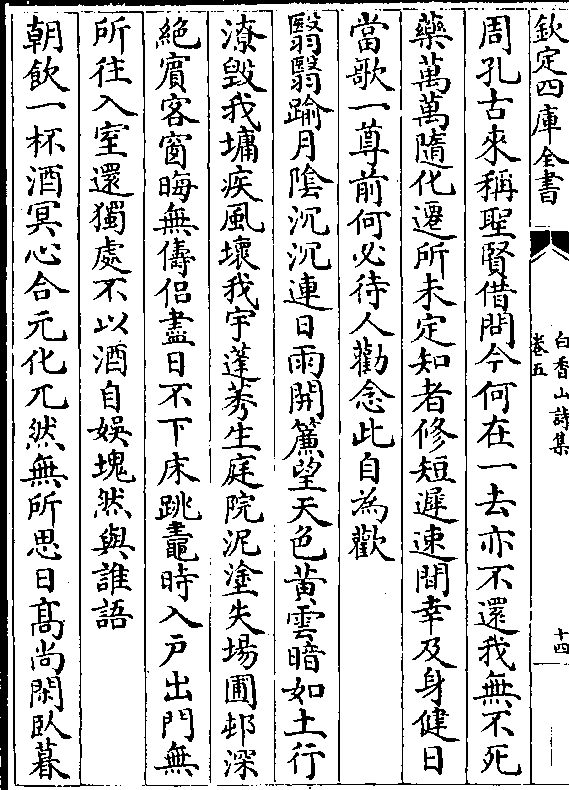 欽定四庫全書
白香山詩集
卷五
十四
周孔古來稱聖賢借問今何在一去亦不還我無不死
藥萬萬隨化遷所未定知者修短遲速間幸及身健日
當歌一尊前何必待人勸念此自為歡
翳翳踰月陰沉沉連日雨開簾望天色黄雲暗如土行
潦毁我墉疾風壞我宇蓬莠生庭院泥塗失場圃邨深
絶賔客窗晦無儔侣盡日不下床跳鼃時入户出門無
所往入室還獨處不以酒自娱塊然與誰語
朝飲一杯酒冥心合元化兀然無所思日髙尚閑臥暮